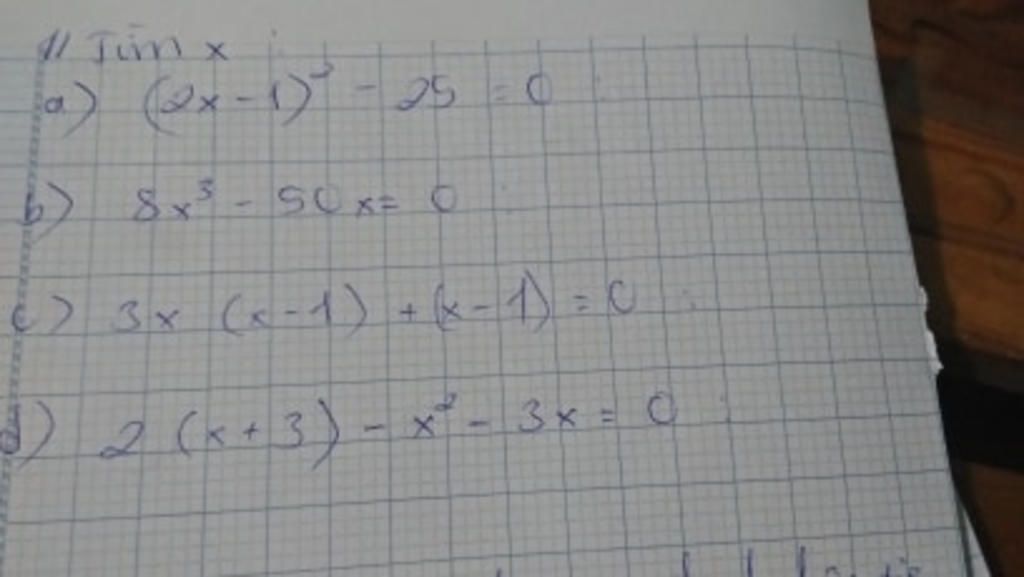 1/ Tìm x
a) (2x - 1)² - 25 = 0
b) 8x³ - 50x = 0
c) 3x (x - 1) + (x - 1) = 0
d) 2 (x + 3) - x² - 3x = 0